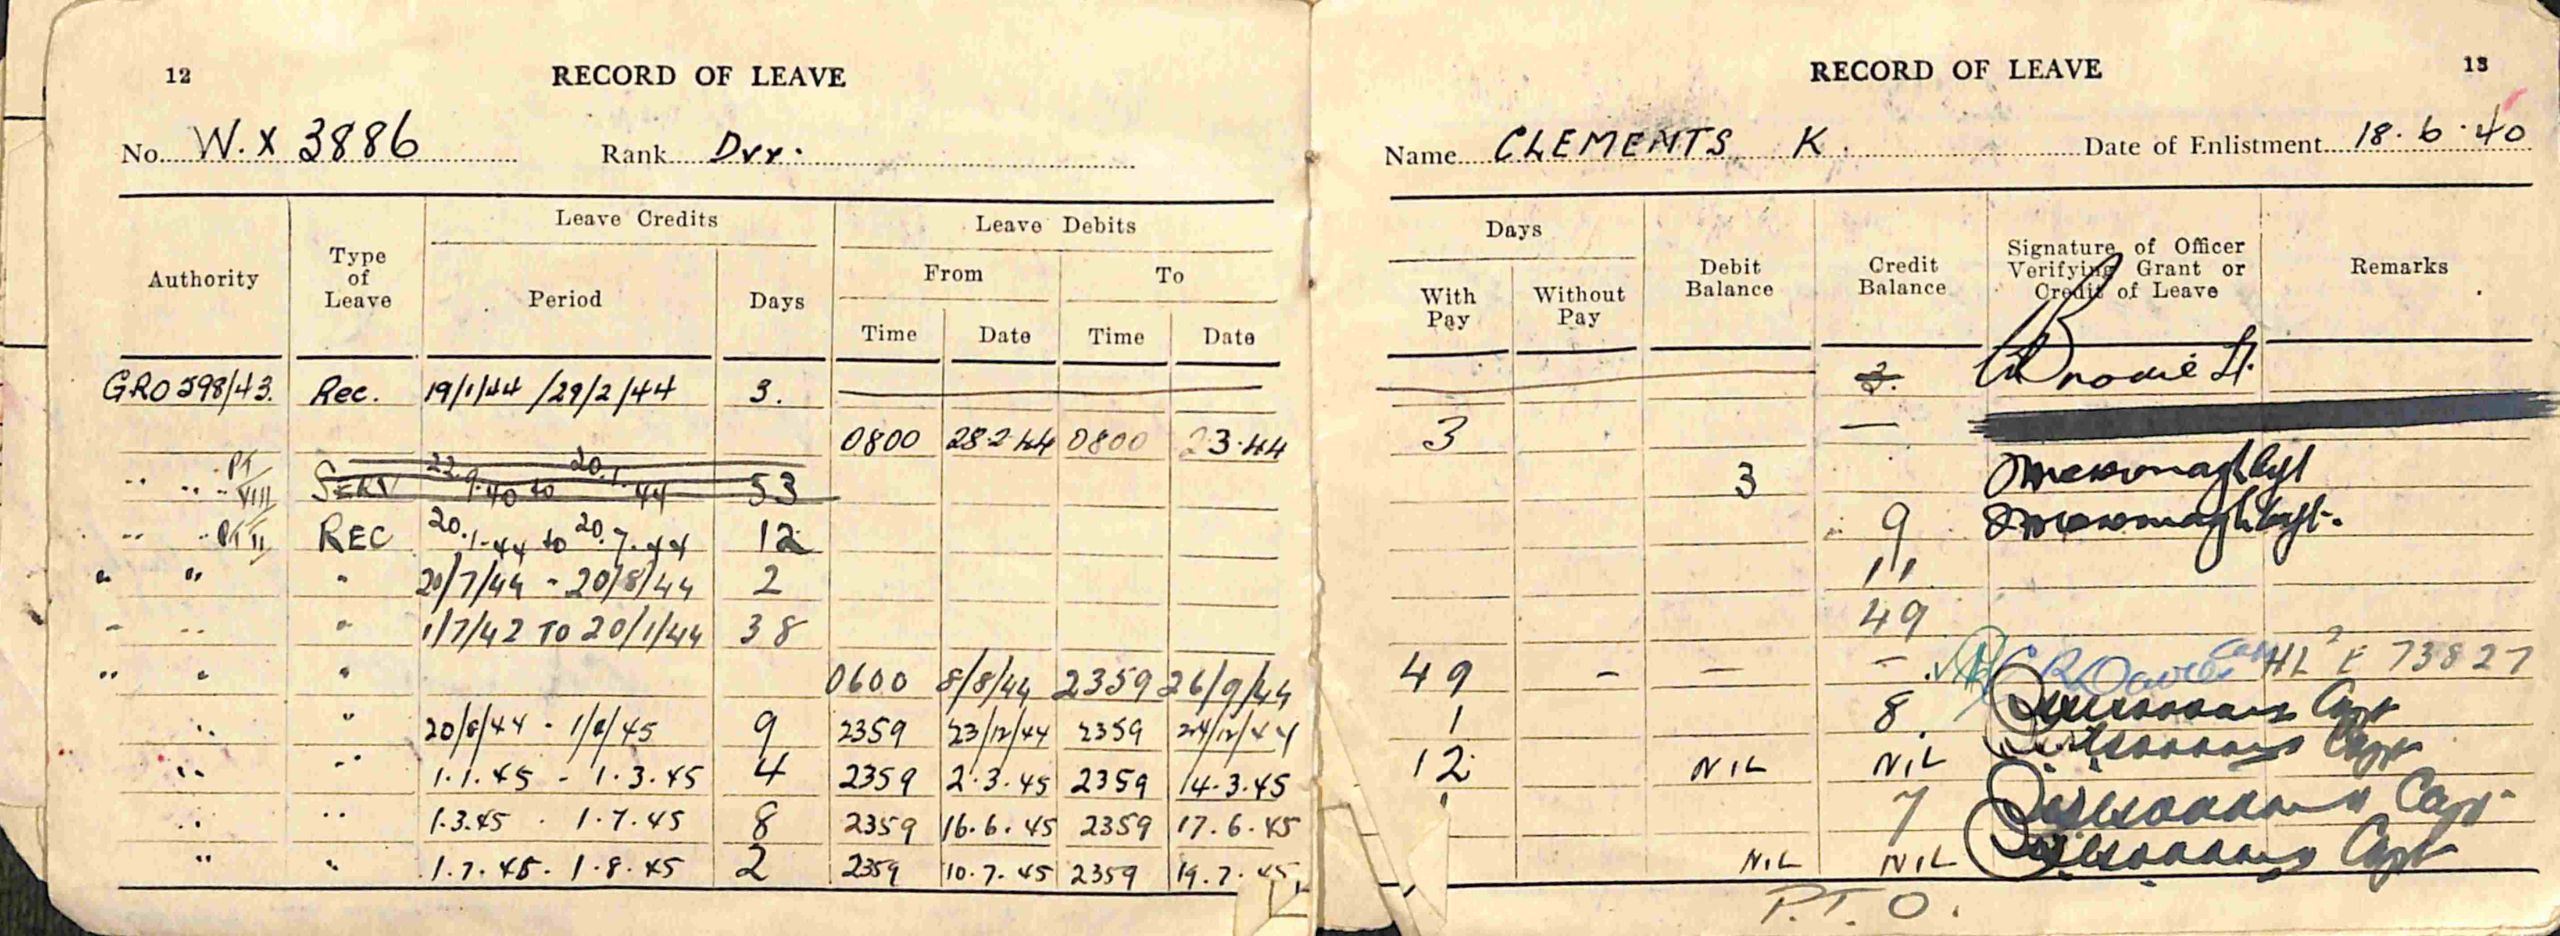 12
RECORD OF LEAVE
No. W.X 3886 Rank Dvr.
Authority Type of Leave Leave Credits Leave Debits
Period Days From To
Time Date Time Date
GRO 398/43. Rec. 19/1/44 /29/2/44 3.
0800 28.2.44 0800 2.3.44
" " PT VIII SERV 22.9.40 to 20.1.44 53
" " PT II REC 20.1.44 to 20.7.44 12
" " " 20/7/44 - 20/8/44 2
" " " 1/7/42 TO 20/1/44 38
" " " 0600 8/8/44 2359 26/9/44
" " 20/8/44 - 1/1/45 9 2359 23/12/44 2359 24/12/44
" " 1.1.45 - 1.3.45 4 2359 2.3.45 2359 14.3.45
" " 1.3.45 - 1.7.45 8 2359 16.6.45 2359 17.6.45
" " 1.7.45 - 1.8.45 2 2359 10.7.45 2359 19.7.45
RECORD OF LEAVE
13
Name CLEMENTS K. Date of Enlistment 18.6.40
Days Debit Balance Credit Balance Signature of Officer Verifying Grant or Credit of Leave Remarks
With Pay Without Pay
3. Lt.
3 —
3
9
11
49
49 - - - Capt HL E 73827
1 8. Capt
12 NIL NIL Capt
1 7 Capt
NIL NIL Capt
P.T.O.